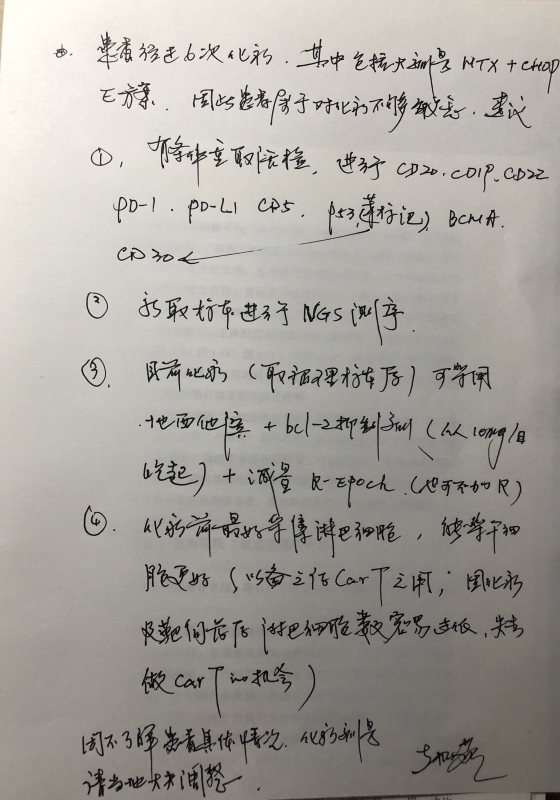 患者经过6次化疗，其中包括大剂量MTX+CHOP
E方案，因此患者属于对化疗不够敏感，建议
①，有条件重取活检，进行CD20、CD19、CD22
PD-1、PD-L1 CD5、P53，(荧标记) BCMA、
CD30
② 所取标本进行NGS测序
③、目前化疗(取病理标本后)可尝用
地西他滨+bcl-2抑制剂(从10mg/日
吃起)+减量R-Epoch.(也可不加R)
④、化疗前最好采集淋巴细胞，能带干细
胞更好(以备之后CarT之用，因化疗
及靶向药后淋巴细胞数容易过低，失去
做CarT的机会)
因不了解患者具体情况，化疗剂量
请当地大夫调整